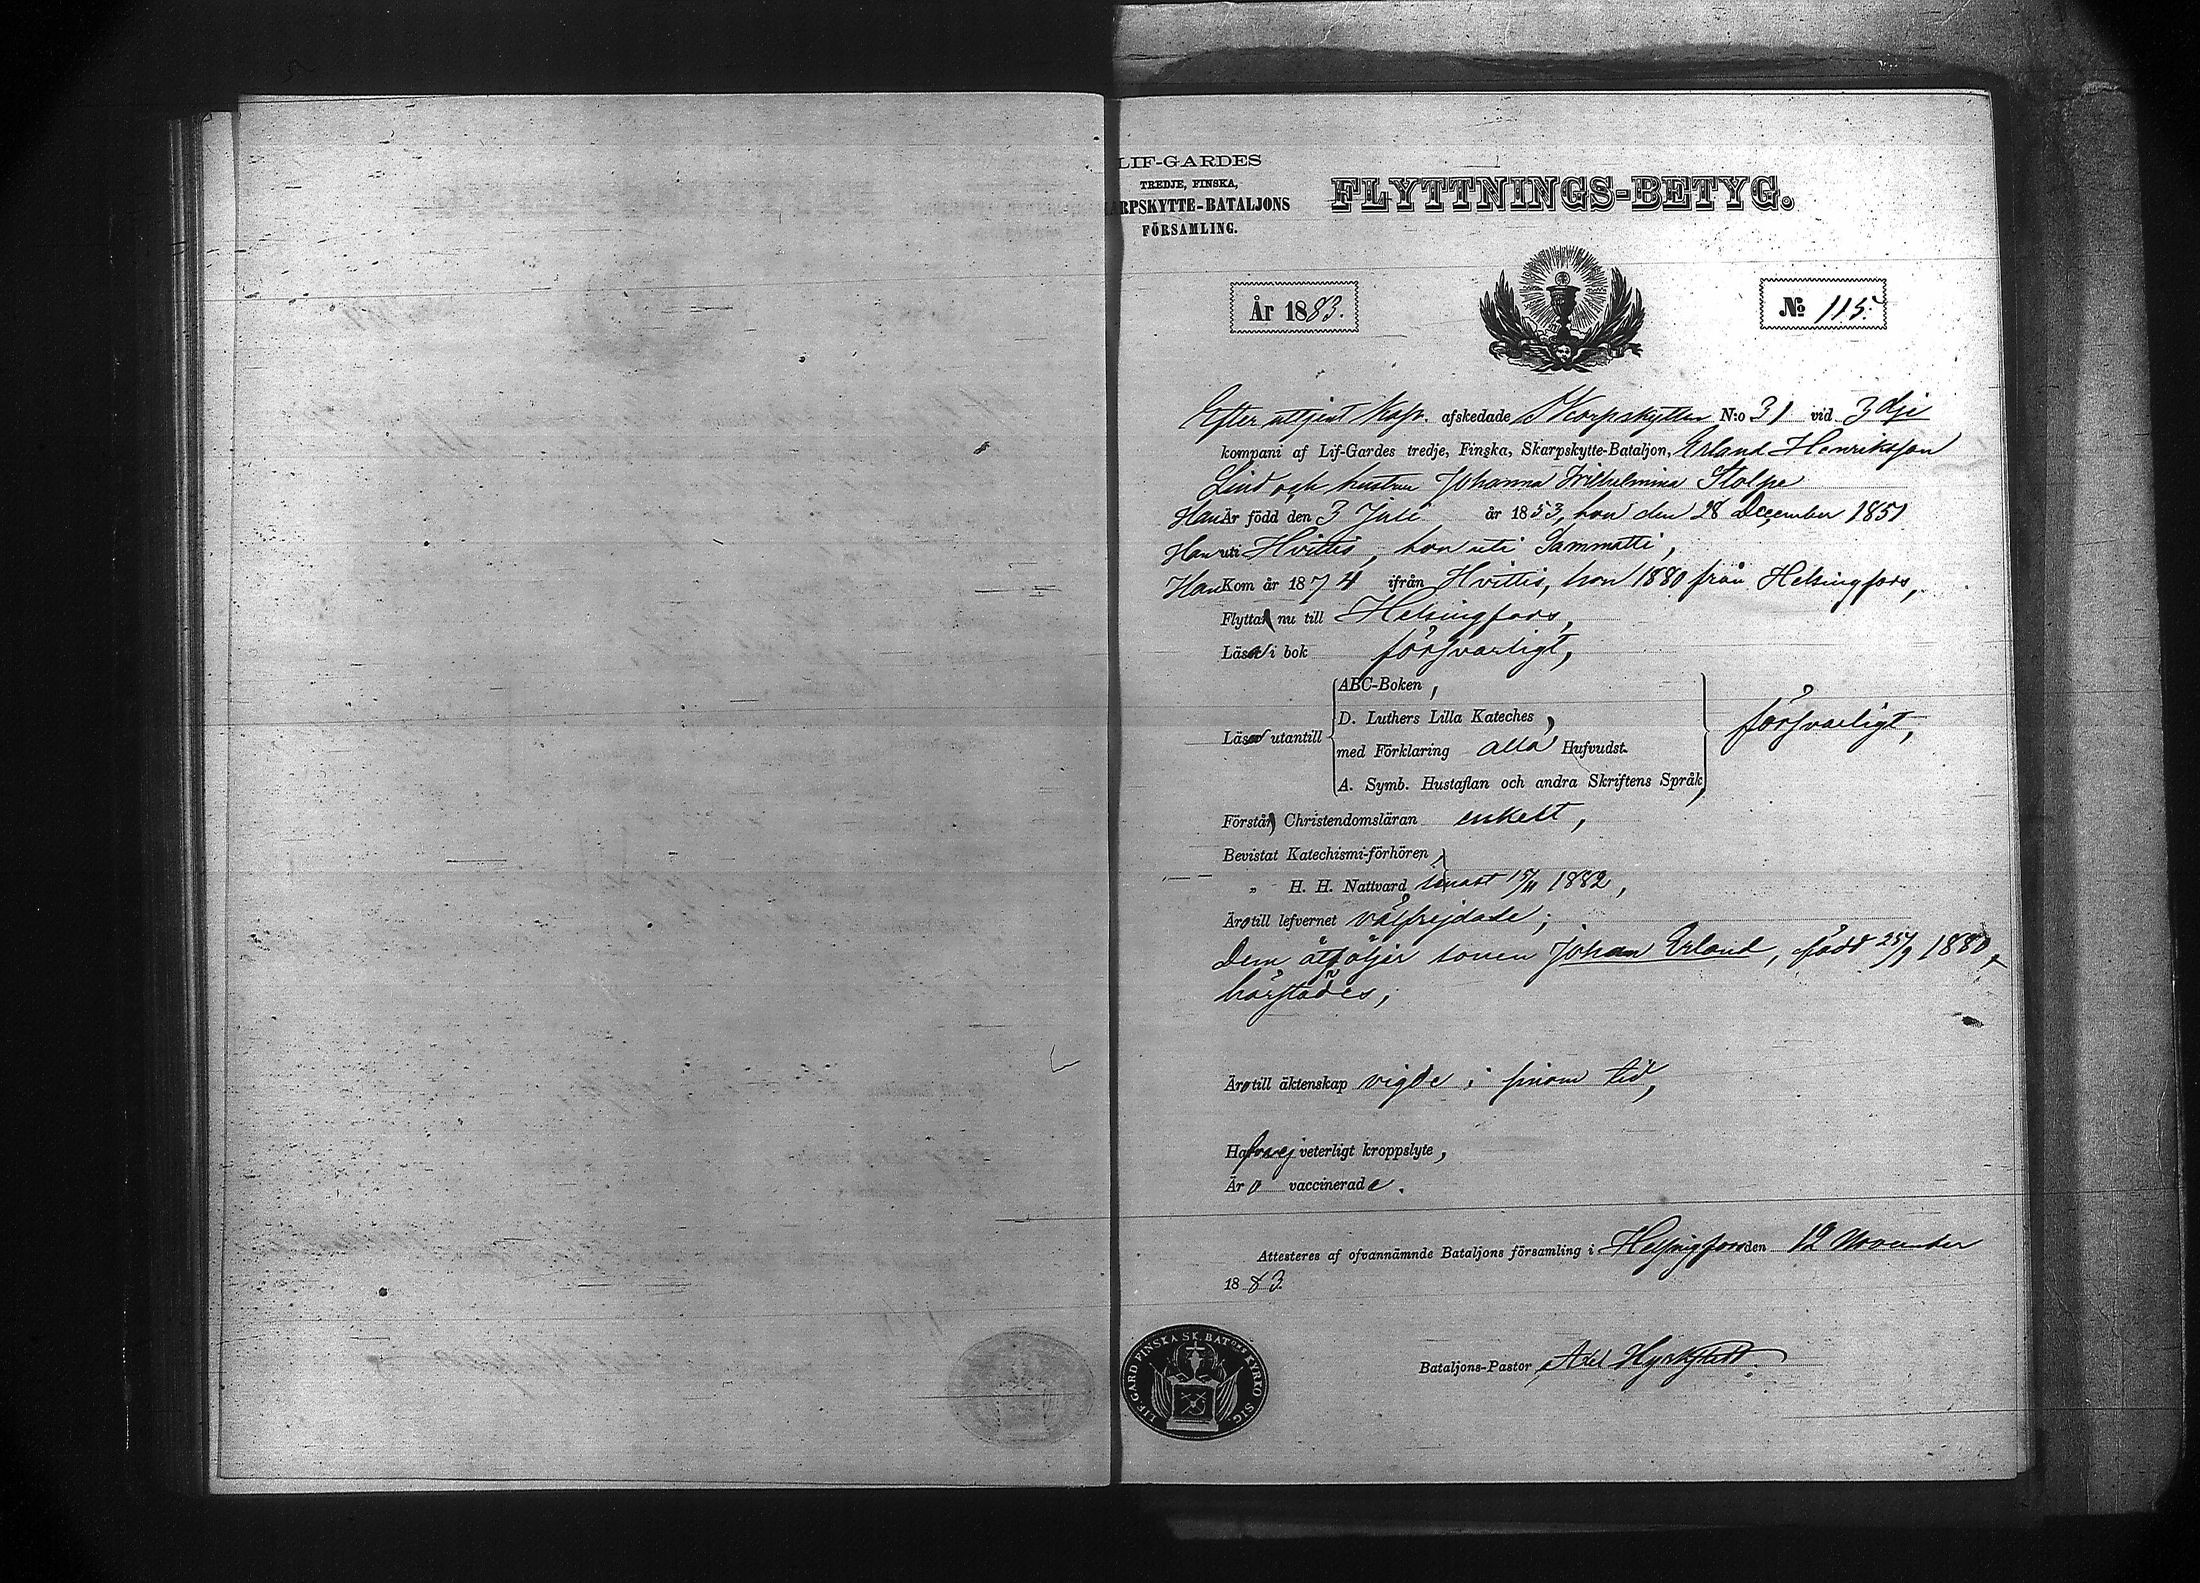 LIF-GARDES
TREDJE, FINSKA,
ARPSKYTTE-BATALJONS
FÖRSAMLING.
FLYTTNINGS-BETYG.
År 1883.
No 115.
Efter uttjent Kap. afskedade Skarpskytten N:o 31 vid 3dje
kompani af Lif-Gardes tredje, Finska, Skarpskytte-Bataljon, Erland Henriksson
Lind och hustru Johanna Wilhelmina Stolpe
Han Är född den 3 Juli år 1853, hon den 28 December 1851
Han uti Hvittis, hon uti Sammatti,
Han Kom år 1874 ifrån Hvittis, hon 1880 från Helsingfors,
Flytta nu till Helsingfors,
Läsa i bok försvarligt,
ABC-Boken,
D. Luthers Lilla Kateches,
Läsa utantill
med Förklaring alla Hufvudst.
försvarligt,
A. Symb. Hustaflan och andra Skriftens Språk,
Förstå Christendomsläran enkelt,
Bevistat Katechismi-förhören
" H. H. Nattvard senast 15/11 1882,
Äro till lefvernet välfrejdade;
Dem åtföljer sonen Johan Erland, född 25/9 1880,
härstädes,
Äro till äktenskap vigde i sinom tid,
Hafva ej veterligt kroppslyte,
Äro vaccinerade.
Attesteres af ofvannämnde Bataljons församling i Helsingfors den 12 November
1883.
LIF-GARD FINSKA SK. BATons KYRKO SIG.
Bataljons-Pastor Axel